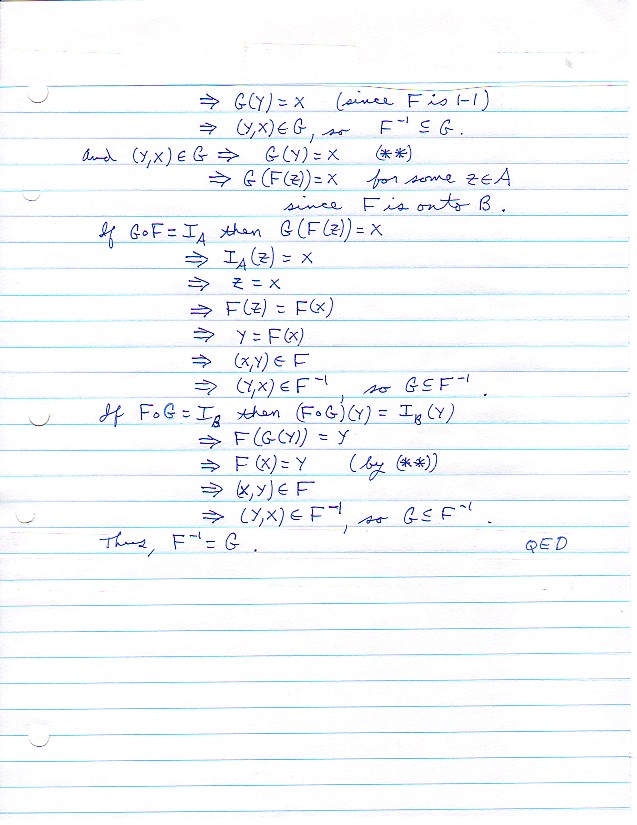 ⇒ G(y) = x (since F is 1-1)
⇒ (y,x) ∈ G, so F⁻¹ ⊆ G.
And (y,x) ∈ G ⇒ G(y) = x (**)
⇒ G(F(z)) = x for some z ∈ A
since F is onto B.
If G∘F = I_A then G(F(z)) = x
⇒ I_A(z) = x
⇒ z = x
⇒ F(z) = F(x)
⇒ y = F(x)
⇒ (x,y) ∈ F
⇒ (y,x) ∈ F⁻¹, so G ⊆ F⁻¹.
If F∘G = I_B then (F∘G)(y) = I_B(y)
⇒ F(G(y)) = y
⇒ F(x) = y (by (**))
⇒ (x,y) ∈ F
⇒ (y,x) ∈ F⁻¹, so G ⊆ F⁻¹.
Thus, F⁻¹ = G. QED